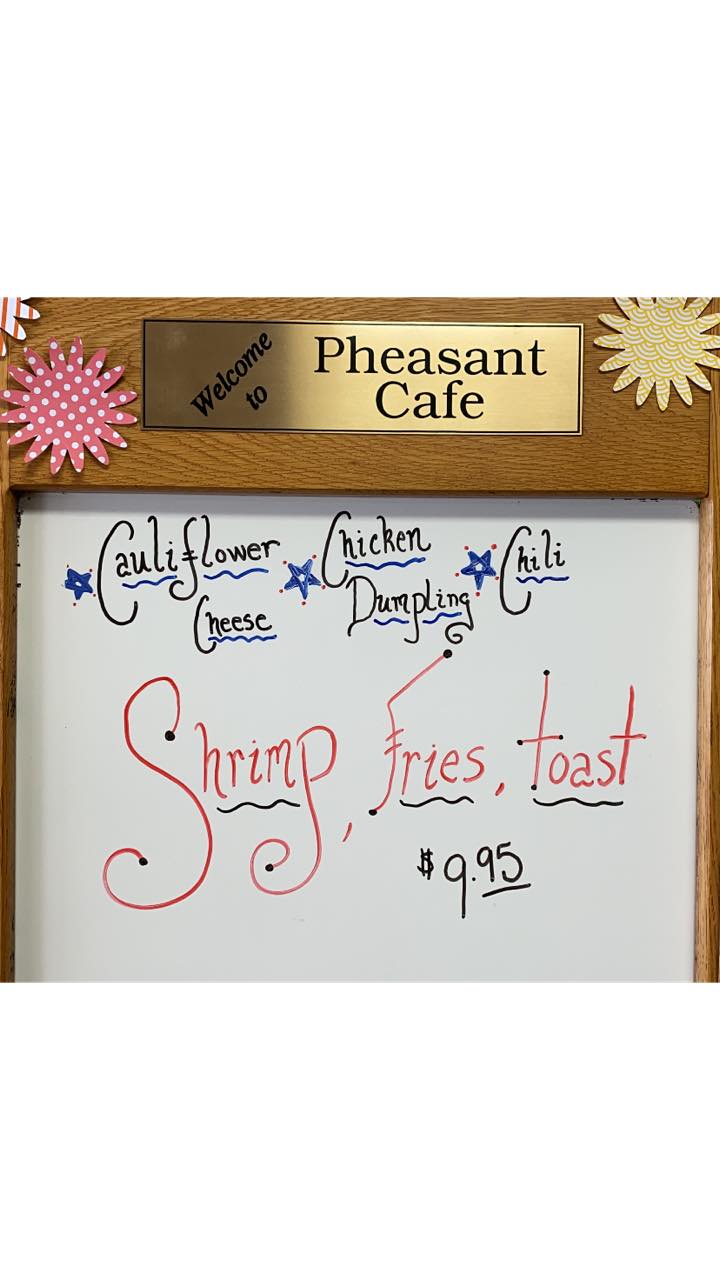 Welcome to
Pheasant
Cafe
Cauliflower Cheese
Chicken Dumpling
Chili
Shrimp, Fries, toast
$9.95